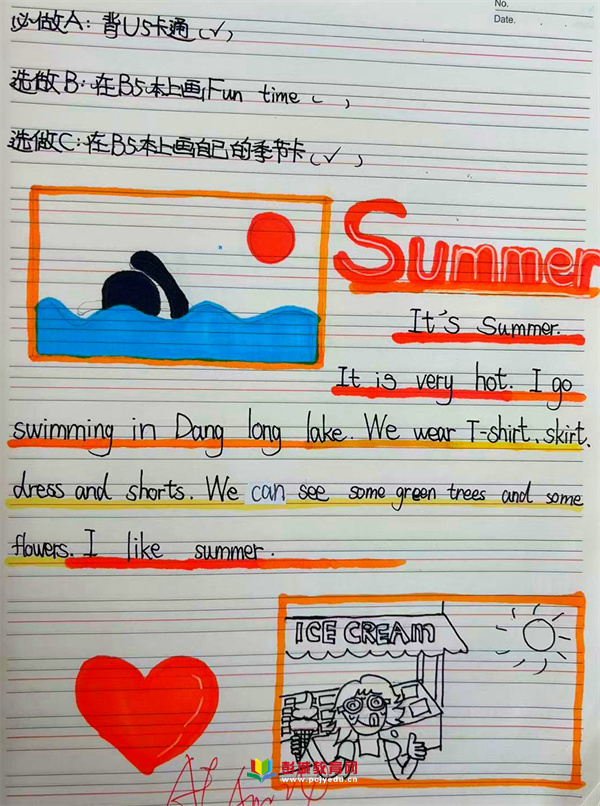 No.
Date.
必做A：背U5卡通（✓）
选做B：在B5本上画Fun time（ ）
选做C：在B5本上画自己的季节卡（✓）
Summer
It's Summer.
It is very hot. I go
swimming in Dang long lake. We wear T-shirt、skirt、
dress and shorts. We can see some green trees and some
flowers. I like summer.
ICE CREAM
彭波教育网
www.pcjyedu.cn